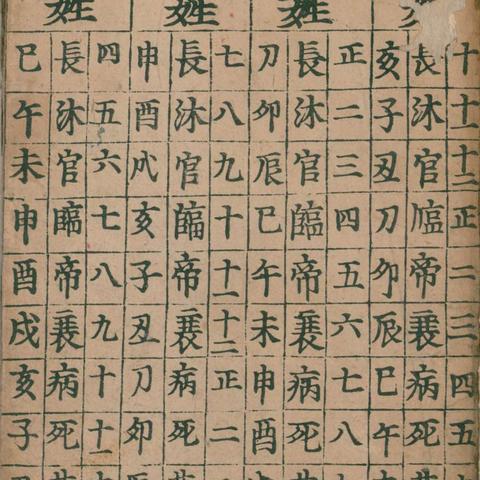 姓
姓
姓
十 十一 十二 正 二 三 四 五
長 沐 官 臨 帝 衰 病 死
亥 子 丑 刀 卯 辰 巳 午
正 二 三 四 五 六 七 八
長 沐 官 臨 帝 衰 病 死
刀 卯 辰 巳 午 未 申 酉
七 八 九 十 十一 十二 正 二
長 沐 官 臨 帝 衰 病 死
申 酉 戌 亥 子 丑 刀 卯
四 五 六 七 八 九 十 十一
長 沐 官 臨 帝 衰 病 死
巳 午 未 申 酉 戌 亥 子